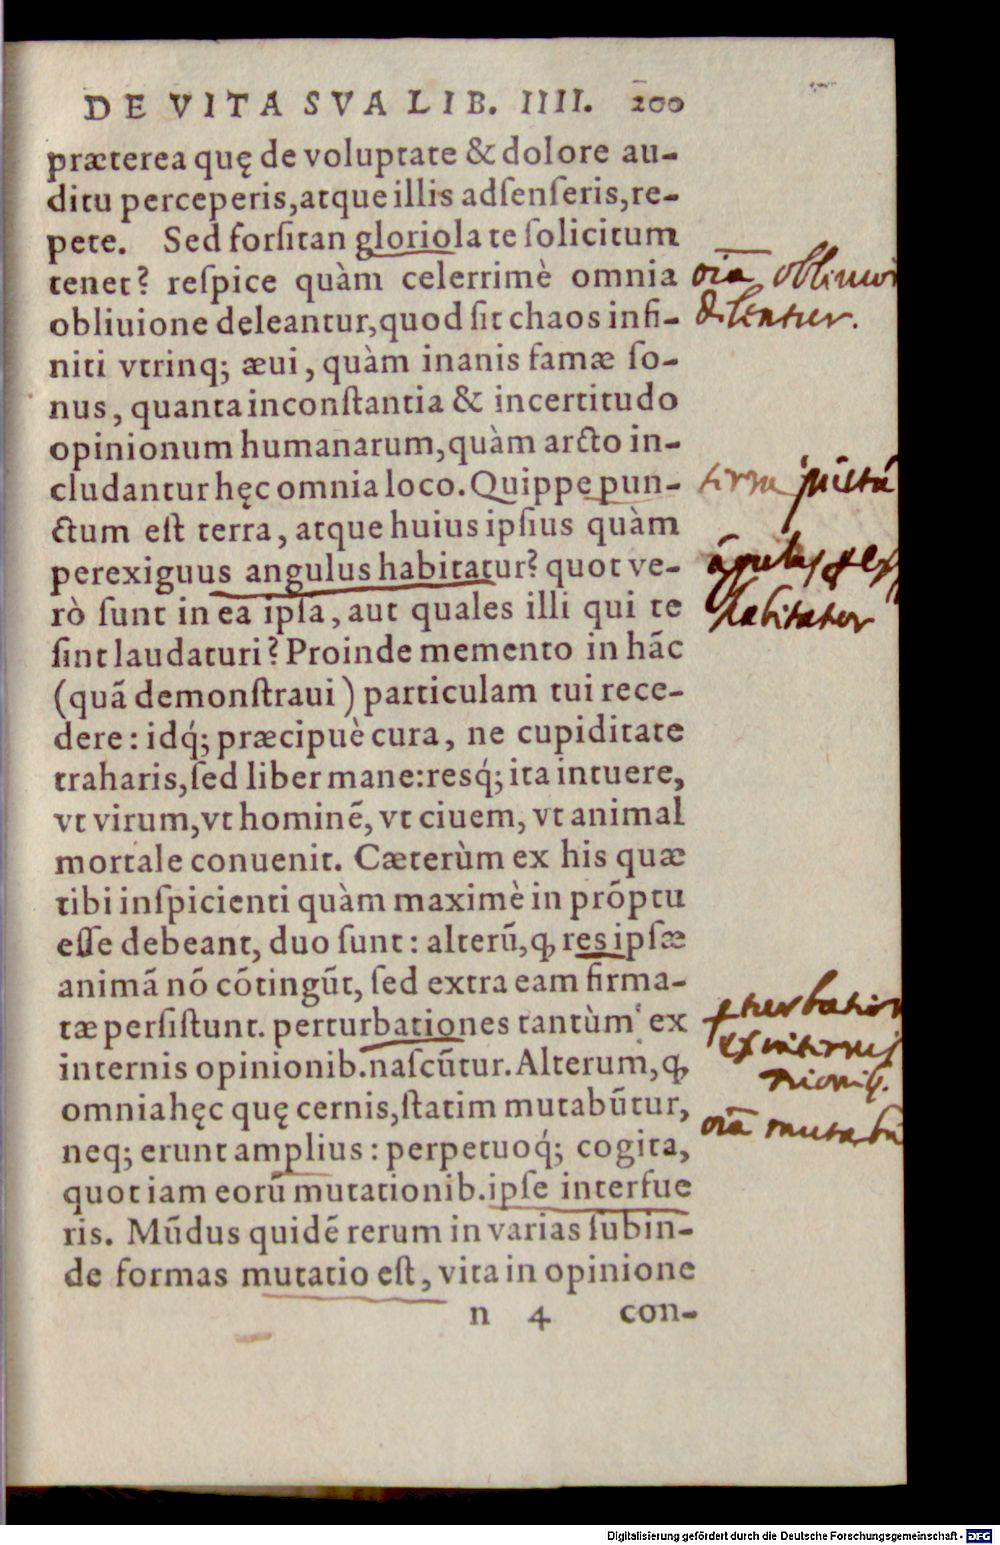 DE VITA SVA LIB. IIII. 200
præterea quę de voluptate & dolore au-
ditu perceperis, atque illis adſenſeris, re-
pete. Sed forſitan gloriola te ſolicitum
tenet? reſpice quàm celerrimè omnia
obliuione deleantur, quod ſit chaos infi-
niti vtrinq; æui, quàm inanis famæ ſo-
nus, quanta inconſtantia & incertitudo
opinionum humanarum, quàm arcto in-
cludantur hęc omnia loco. Quippe pun-
ctum eſt terra, atque huius ipſius quàm
perexiguus angulus habitatur? quot ve-
rò ſunt in ea ipſa, aut quales illi qui te
ſint laudaturi? Proinde memento in hãc
(quã demonſtraui) particulam tui rece-
dere: idq́; præcipuè cura, ne cupiditate
traharis, ſed liber mane: resq́; ita intuere,
vt virum, vt hominẽ, vt ciuem, vt animal
mortale conuenit. Cæterùm ex his quæ
tibi inſpicienti quàm maximè in prõptu
eſſe debeant, duo ſunt: alterũ, ꝙ res ipſæ
animã nõ cõtingũt, ſed extra eam firma-
tæ perſiſtunt. perturbationes tantùm ex
internis opinionib. naſcũtur. Alterum, ꝙ
omnia hęc quę cernis, ſtatim mutabũtur,
neq; erunt amplius: perpetuoq́; cogita,
quot iam eorũ mutationib. ipſe interfue
ris. Mũdus quidẽ rerum in varias ſubin-
de formas mutatio eſt, vita in opinione
n 4 con-
oīa obliuioi
delentur.
terra pūctū
āgulus
habitatur
ꝑturbation
ex internis
nionib.
oīa mutabū
Digitalisierung gefördert durch die Deutsche Forschungsgemeinschaft - DFG